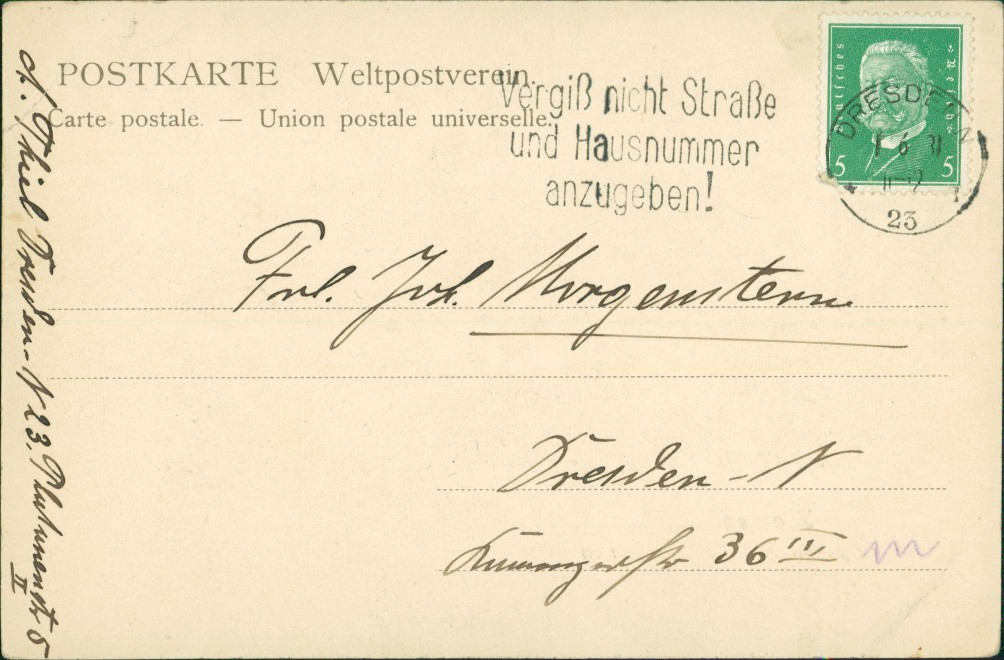 POSTKARTE Weltpostverein.
Carte postale. — Union postale universelle.
Vergiß nicht Straße
und Hausnummer
anzugeben!
Deutsches Reich
5 5
DRESDEN
1 6 31
11-12
23
Frl. Joh. Morgenstern
Dresden - N
36 III
A. Thiel Dresden - N 23.
5
II